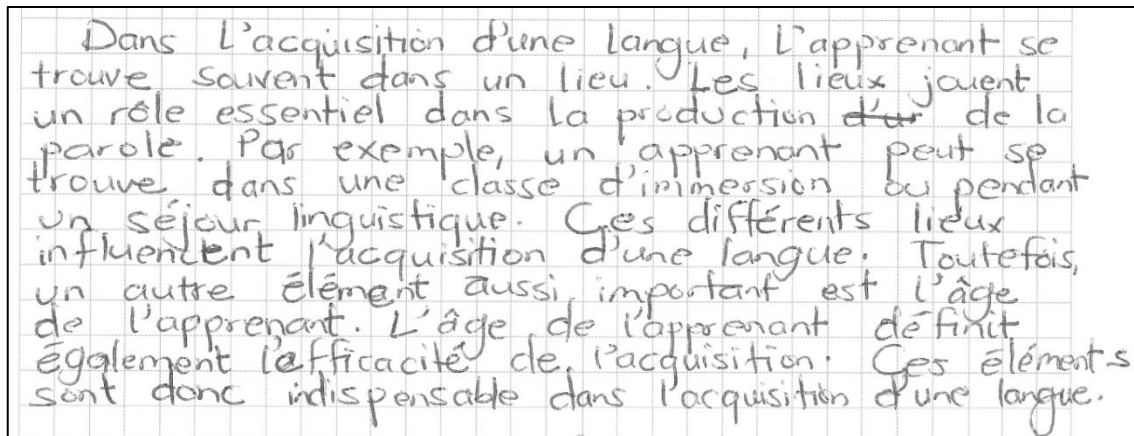 Dans l'acquisition d'une langue, l'apprenant se
trouve souvent dans un lieu. Les lieux jouent
un rôle essentiel dans la production d'un de la
parole. Par exemple, un apprenant peut se
trouve dans une classe d'immersion ou pendant
un séjour linguistique. Ces différents lieux
influencent l'acquisition d'une langue. Toutefois,
un autre élément aussi important est l'âge
de l'apprenant. L'âge de l'apprenant définit
également l'efficacité de l'acquisition. Ces éléments
sont donc indispensable dans l'acquisition d'une langue.